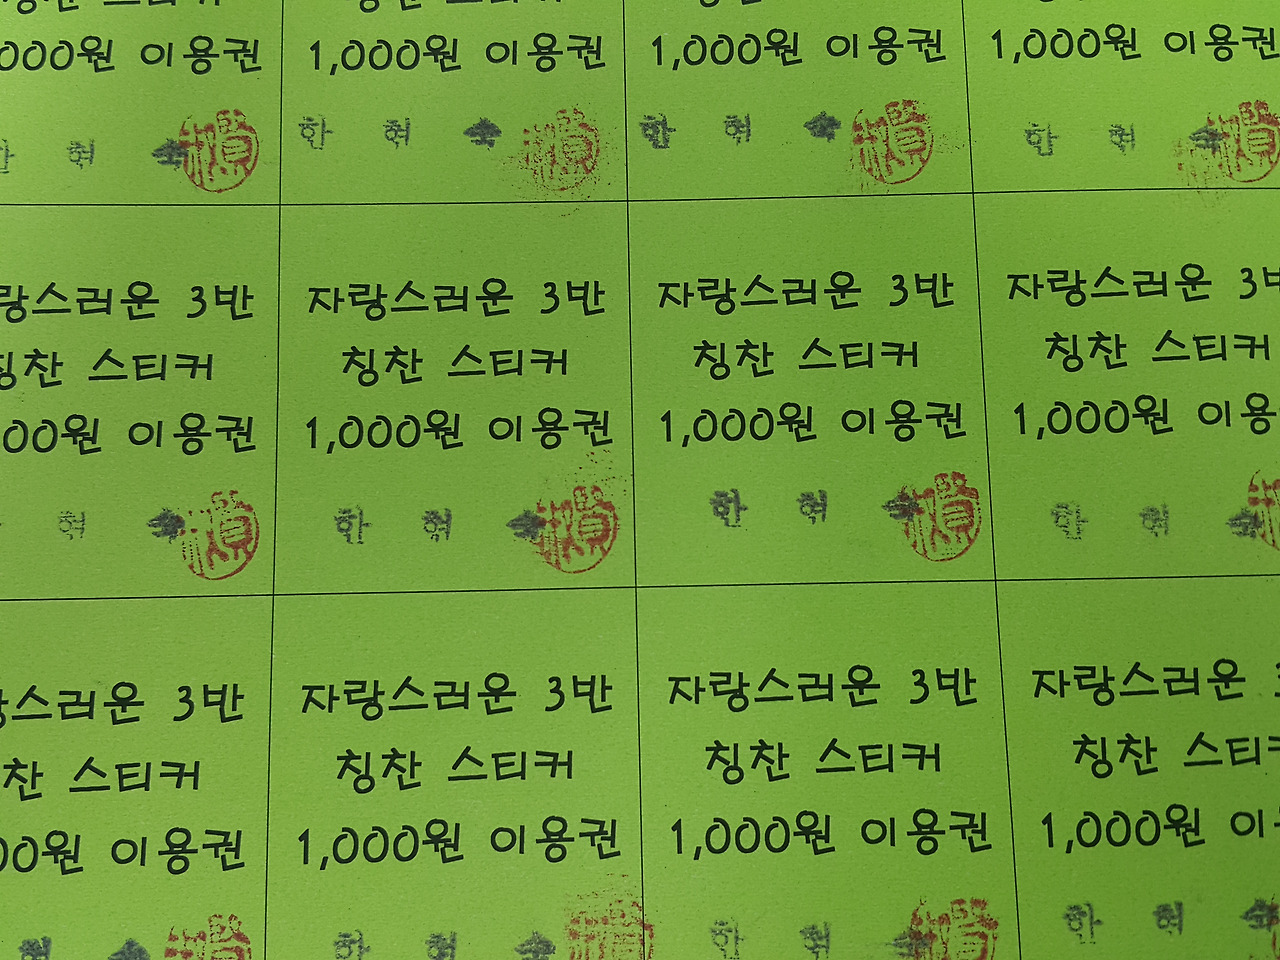 찬 스티커
000원 이용권 1,000원 이용권 1,000원 이용권 1,000원 이용권
혁 한 혁 숙 한 혁 한 혁
랑스러운 3반 자랑스러운 3반 자랑스러운 3반 자랑스러운 3반
칭찬 스티커 칭찬 스티커 칭찬 스티커 칭찬 스티커
00원 이용권 1,000원 이용권 1,000원 이용권 1,000원 이용
혁 한 혁 한 혁 한 혁
스러운 3반 자랑스러운 3반 자랑스러운 3반 자랑스러운
찬 스티커 칭찬 스티커 칭찬 스티커 칭찬 스티
00원 이용권 1,000원 이용권 1,000원 이용권 1,000원 이
혁 한 혁 한 혁 한 혁